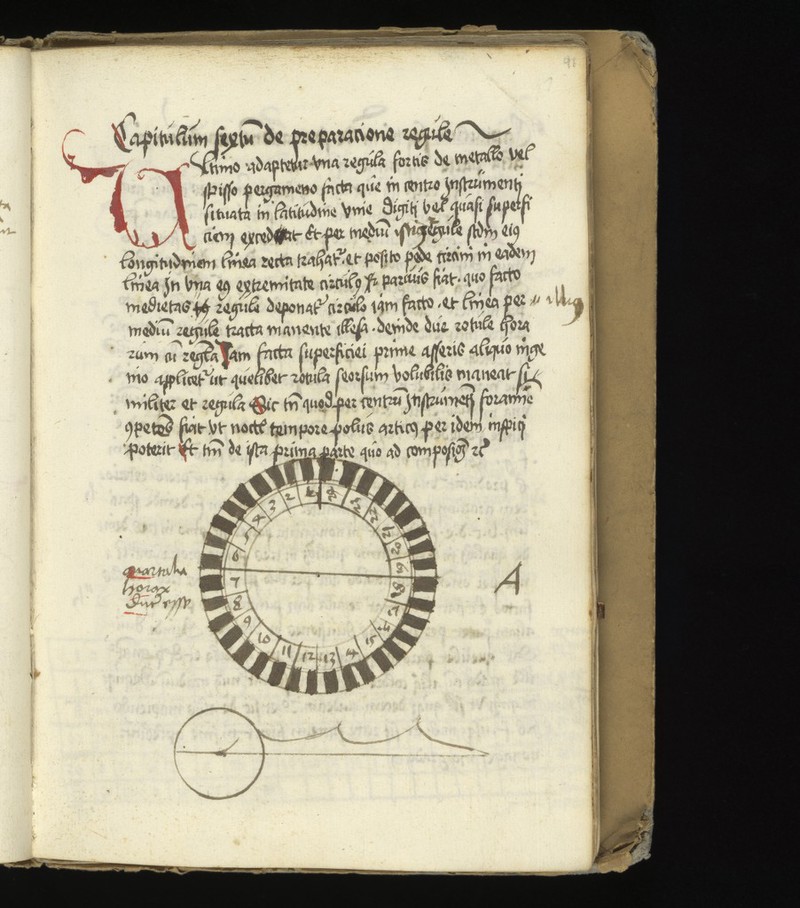 91
Capitulum sextu de preparacione regule
Ultimo adaptetur vna regula fortis de metallo vel
spisso pergameno facta que in centro Instrumenti
situata in latitudine vnius digiti vel quasi superfi
ciem excedat Et per mediu regule scdm eius
longitudinem linea recta trahat et posito pede circini in eadem
linea In vna eius extremitate circulus paruus fiat. quo facto
medietas regule deponat circulo iam facto. et linea per illius
mediu regule tracta manente illesa. deinde due rotule hora
rum cu regula Iam facta superficiei prime asseris aliquo inge
nio applicet ut quelibet rotula seorsum volubilis maneat si
militer et regula Sic tn quod per centru Instrumenti foramine
fiat vt noctis tempore polus articus per idem inspici
poterit Et tm de ista prima parte quo ad
1 2 3 4 5 6 7 8 9 10 11 12 13 14 15
quartalia
horarum
A